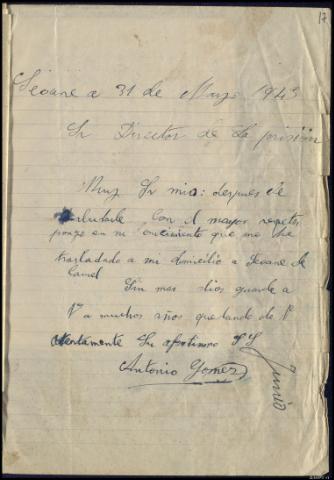 17
Seoane a 31 de Mayo 1943
Sr Director de la prisión
Muy Sr mio: despues de
saludarle con el mayor respeto
pongo en su conocimiento que me he
trasladado a mi domicilio a Seoane de
Caurel
Sin mas dios guarde a
V a muchos años quedando de V
atentamente Su afmo S S
Antonio Gomez
Junio